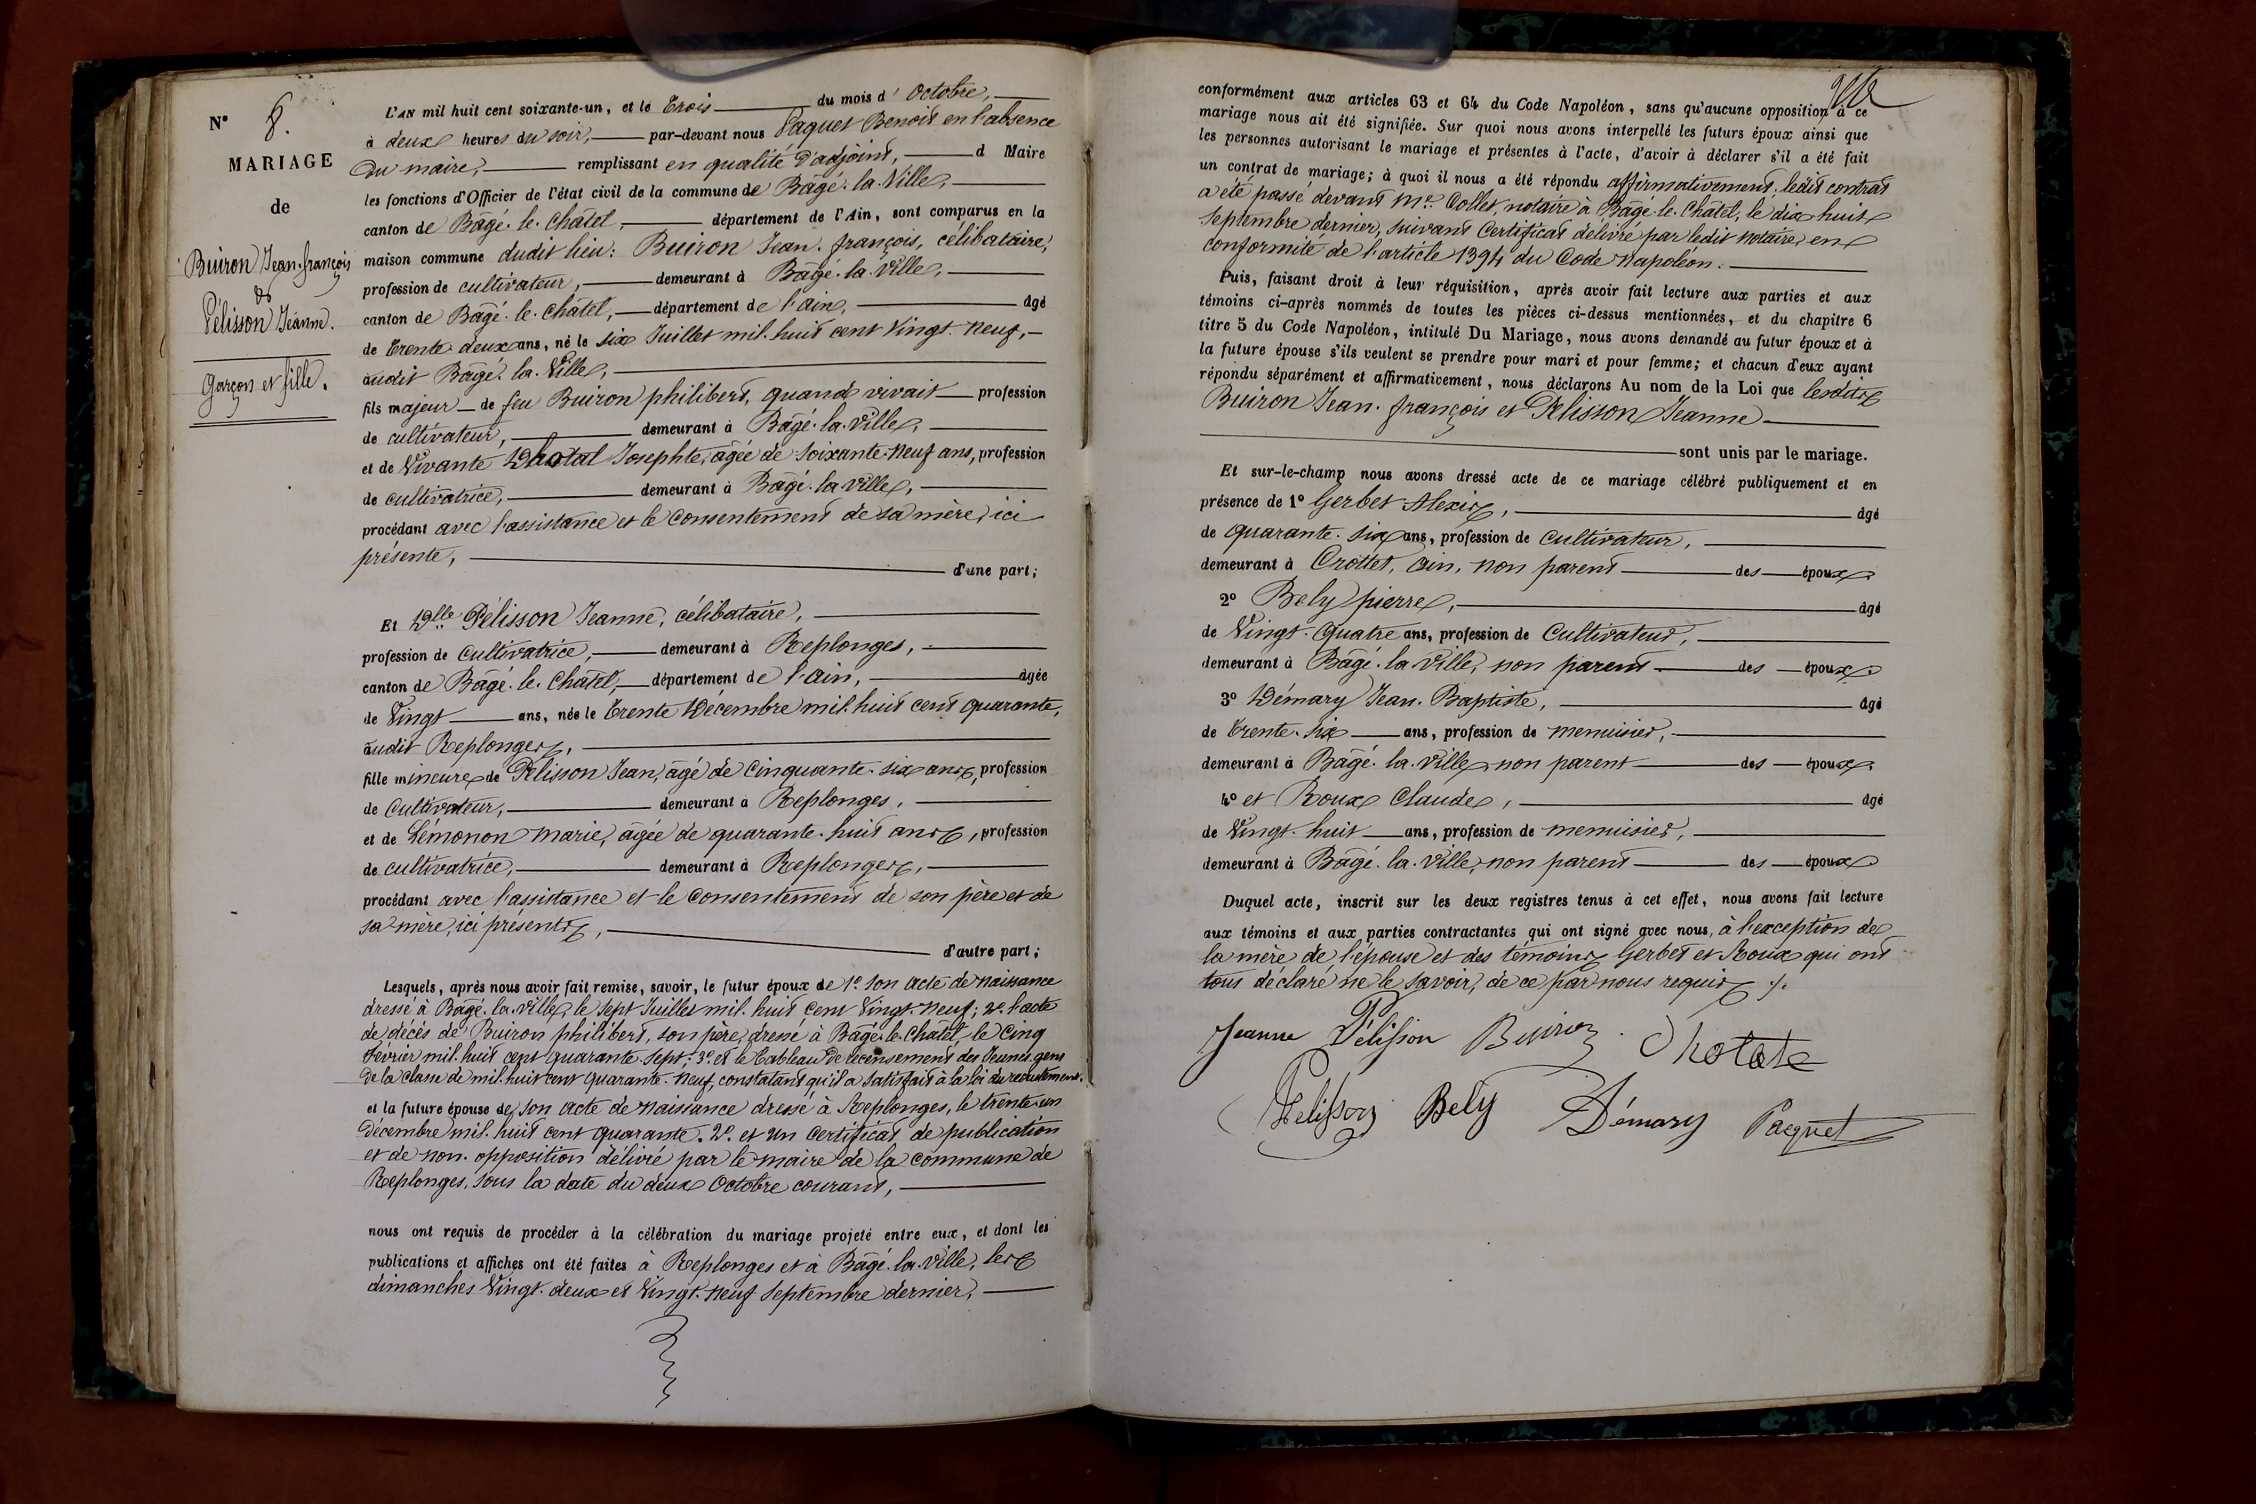 N° 8.
MARIAGE
de
Buiron Jean-françois
&
Pélisson Jeanne.
Garçon et fille.
L'AN mil huit cent soixante-un, et le Trois du mois d' Octobre,
à deux heures du soir, par-devant nous Paquet Benoit en l'absence
du maire, remplissant en qualité d'adjoint, d Maire
les fonctions d'Officier de l'état civil de la commune de Bâgé-la-Ville,
canton de Bâgé-le-Châtel, département de l'Ain, sont comparus en la
maison commune dudit lieu: Buiron Jean-françois, célibataire,
profession de cultivateur, demeurant à Bâgé-la-Ville,
canton de Bâgé-le-Châtel, département de l'ain, âgé
de Trente-deux ans, né le six Juillet mil-huit cent vingt-neuf,
audit Bâgé-la-Ville,
fils majeur de feu Buiron philibert, quand vivait profession
de cultivateur, demeurant à Bâgé-la-Ville,
et de Vivante Dhotal Josephte, âgée de soixante-neuf ans, profession
de cultivatrice, demeurant à Bâgé-la-ville,
procédant avec l'assistance et le consentement de sa mère, ici
présente, d'une part;
Et Dlle Pélisson Jeanne, célibataire,
profession de Cultivatrice, demeurant à Replonges,
canton de Bâgé-le-Châtel, département de l'ain, âgée
de Vingt ans, née le Trente Décembre mil-huit cent quarante,
audit Replonges,
fille mineure de Pélisson Jean, âgé de Cinquante-six ans, profession
de Cultivateur, demeurant à Replonges,
et de Lémonon Marie, âgée de quarante-huit ans, profession
de cultivatrice, demeurant à Replonges,
procédant avec l'assistance et le consentement de son père et de
sa mère, ici présents, d'autre part;
Lesquels, après nous avoir fait remise, savoir, le futur époux de 1° son acte de naissance
dressé à Bâgé-la-Ville, le sept Juillet mil-huit cent vingt-neuf; 2° l'acte
de décès de Buiron philibert, son père, dressé à Bâgé-le-Châtel, le Cinq
février mil-huit cent quarante-sept; 3° et le Tableau de recensement des Jeunes gens
de la classe de mil-huit cent quarante-neuf, constatant qu'il a satisfait à la loi du recrutement.
et la future épouse de son acte de naissance dressé à Replonges, le trente-un
Décembre mil-huit cent quarante. 2° et un certificat de publication
et de non-opposition délivré par le maire de la commune de
Replonges, sous la date du deux Octobre courant,
nous ont requis de procéder à la célébration du mariage projeté entre eux, et dont les
publications et affiches ont été faites à Replonges et à Bâgé-la-Ville, les
dimanches Vingt-deux et Vingt-neuf Septembre dernier,
conformément aux articles 63 et 64 du Code Napoléon, sans qu'aucune opposition à ce
mariage nous ait été signifiée. Sur quoi nous avons interpellé les futurs époux ainsi que
les personnes autorisant le mariage et présentes à l'acte, d'avoir à déclarer s'il a été fait
un contrat de mariage; à quoi il nous a été répondu affirmativement. ledit contrat
a été passé devant Me. Collet, notaire à Bâgé-le-Châtel, le dix-huit
Septembre dernier, suivant Certificat délivré par ledit notaire, en
conformité de l'article 1394 du Code Napoléon.
Puis, faisant droit à leur réquisition, après avoir fait lecture aux parties et aux
témoins ci-après nommés de toutes les pièces ci-dessus mentionnées, et du chapitre 6
titre 5 du Code Napoléon, intitulé Du Mariage, nous avons demandé au futur époux et à
la future épouse s'ils veulent se prendre pour mari et pour femme; et chacun d'eux ayant
répondu séparément et affirmativement, nous déclarons Au nom de la Loi que lesdits
Buiron Jean-françois et Pélisson Jeanne
sont unis par le mariage.
Et sur-le-champ nous avons dressé acte de ce mariage célébré publiquement et en
présence de 1° Gerbet Alexis, âgé
de quarante-six ans, profession de cultivateur,
demeurant à Crottet, ain, non parent des époux.
2° Bely pierre, âgé
de Vingt-Quatre ans, profession de Cultivateur,
demeurant à Bâgé-la-Ville, non parent des époux.
3° Démary Jean-Baptiste, âgé
de Trente-six ans, profession de menuisier,
demeurant à Bâgé-la-Ville, non parent des époux.
4° et Roux Claude, âgé
de Vingt-huit ans, profession de menuisier,
demeurant à Bâgé-la-Ville, non parent des époux
Duquel acte, inscrit sur les deux registres tenus à cet effet, nous avons fait lecture
aux témoins et aux parties contractantes qui ont signé avec nous, à l'exception de
la mère de l'épouse et des témoins Gerbet et Roux qui ont
tous déclaré ne le savoir, de ce par nous requis ./.
Jeanne Pélisson Buiron Dhotate
Pelisson Bely Démary Paquet